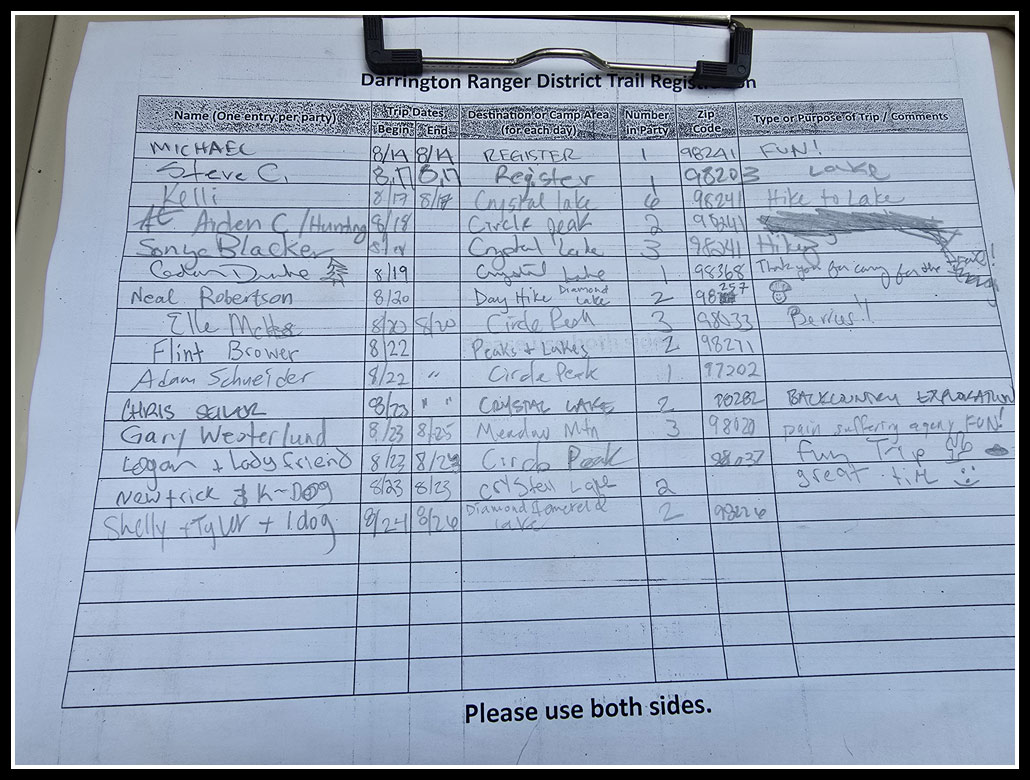 Darrington Ranger District Trail Registration
Name (One entry per party) Trip Dates Begin End Destination or Camp Area (for each day) Number in Party Zip Code Type or Purpose of Trip / Comments
MICHAEL 8/14 8/14 REGISTER 1 98241 FUN!
Steve C. 8,17 8,17 Register 1 98203 LAKE
Kelli 8/17 8/17 Crystal lake 6 98241 Hike to Lake
Aiden C / Hunting 8/18 Circle peak 2 98241
Sonya Blacker Crystal Lake 3 98241 Hiking
8/19 Crystal Lake 1 98368 Thank you for caring for the trail!
Neal Robertson 8/20 Day Hike Diamond Lake 2 98257
Elle 8/20 8/20 Circle Peak 3 98033 Berries!!
Flint Brower 8/22 Peaks + Lakes 2 98271
Adam Schneider 8/22 " Circle Peak 1 97202
CHRIS 8/23 " " CRYSTAL LAKE 2 BACKCOUNTRY EXPLORATION
Gary Westerlund 8/23 8/25 Meadow Mtn 3 98020 pain suffering agony FUN!
Logan + Lady friend 8/23 Circle Peak 98037 Fun Trip
Newtrick & K-Dog 8/23 8/23 Crystell Lake 2 great
Shelly + Tyler + 1 dog 8/24 8/26 Diamond Lake 2 98226
Please use both sides.